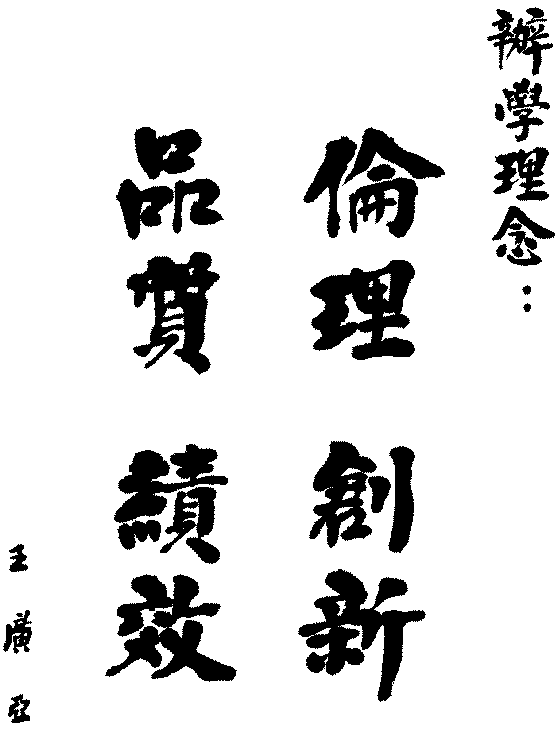 辦學理念：
倫理 創新
品質 績效
王廣亞